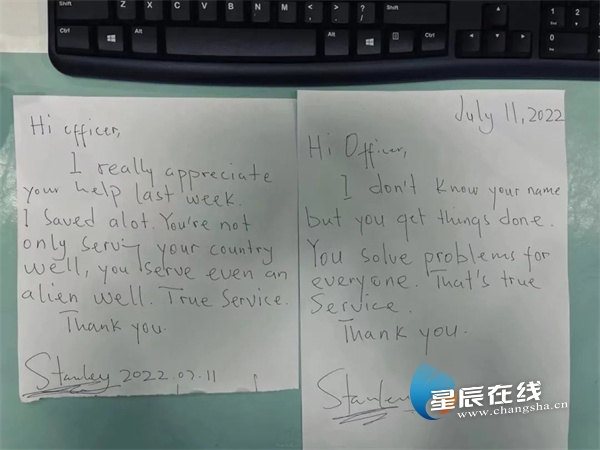 Shift
Z
X
C
V
B
N
M
<
,
>
.
?
/
Shift
Ctrl
Alt
Alt
Ctrl
1
End
2
3
0
Ins
Hi officer,
I really appreciate
your help last week.
I saved alot. You're not
only serving your country
well, you serve even an
alien well. True Service.
Thank you.
Stanley 2022.07.11
July 11, 2022
Hi Officer,
I don't know your name
but you get things done.
You solve problems for
everyone. That's true
Service.
Thank you.
Stanley
星辰在线
www.changsha.cn